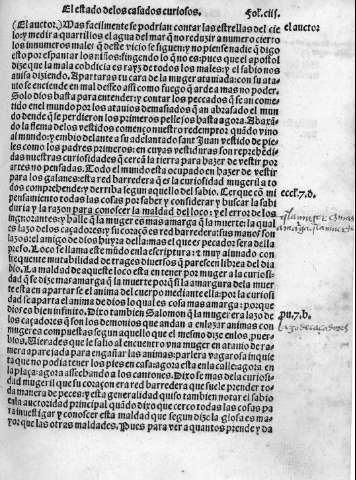 El estado de los casados curiosos. Fol. ciij.
(El auctor.) Mas facilmente se podrian contar las estrellas del cie
lo: y medir a quartillos el agua del mar q̃ no reduzir a numero cierto
los innumeros males q̃ deste vicio se siguẽ: y no piense nadie q̃ digo
esto por espantar los niños: fingendo lo q̃ no es: pues que el apostol
dize que la mala cobdicia es rayz de todos los males: y el sabio nos
auisa diziendo. Apartaras tu cara de la muger atauiada: con su ata
uio se enciende en mal desseo assi como fuego q̃ arde a mas no poder.
Solo dios basta para entender: y contar los pecados q̃ se an come
tido en el mundo por los atauios demasiados q̃ an abrasado el mun
do dende q̃ se perdieron los primeros pellejos hasta agora. A baxã
do la flema de los vestidos començo nuestro redemptor quãdo vino
al mundo: y embio delante a su adelantado sant Juan vestido de pie
les como los padres primeros: en cuyas vestiduras son reprehẽdi
das nuestras curiosidades q̃ cercã la tierra para hazer de vestir por
artes no pensadas. Todo el mundo esta ocupado en hazer de vestir
para los galanes: esta red barredera q̃ es la curiosidad mugeril a to
dos comprehende: y derriba segun aquello del sabio. Cerque cõ mi
pensamiento todas las cosas por saber y considerar y buscar la sabi
duria y la razon para conoscer la maldad del loco: y el error de los
ingnorantes: y halle q̃ la muger es mas amarga q̃ la muerte: la qual
es lazo de los caçadores: y su coraçõ es red barredera: sus manos son
lazos: el amigo de dios huyra della: mas el que es pecador sera della
preso. Loco se llama este mũdo en la escriptura: y muy aliuado con
frequente mutabilidad de trages diuersos q̃ parescen librea del dia
blo. La maldad de aqueste loco esta en tener por muger a la curiosi
dad q̃ se dize mas amarga q̃ la muerte porq̃ si la amargura dela muer
te esta en apartar se el anima del cuerpo mediante ella: por la curiosi
dad se aparta el anima de dios lo qual es cosa mas amarga: porque
dios es bien infinito. Dixo tambien Salomon q̃ la muger era lazo de
los caçadores q̃ son los demonios que andan a enlazar animas con
mugeres compuestas segun aquello que el mesmo dize en los prouer
bios. Mirad es que le salio al encuentro vna muger en atauio de ra
mera aparejada para engañar las animas: parlera y vagarosa inquie
ta que no podia tener los pies en casa: agora esta en la calle: agora en
la plaça: agora assechando a los cantones. Dixo se mas dela curiosi
dad mugeril que su coraçon era red barredera que suele prender to
da manera de peces: y esta generalidad quiso tambien notar el sabio
en la auctoridad principal quãdo dixo que cerco todas las cosas pa
ra inuestigar y conoscer esta maldad que segun dize la glosa es ma
yor que las otras maldades. Pues para ver a quantos prende y da
el auctor
eccl'. 7. d.
pu. 7. b.
lazo de caçadores